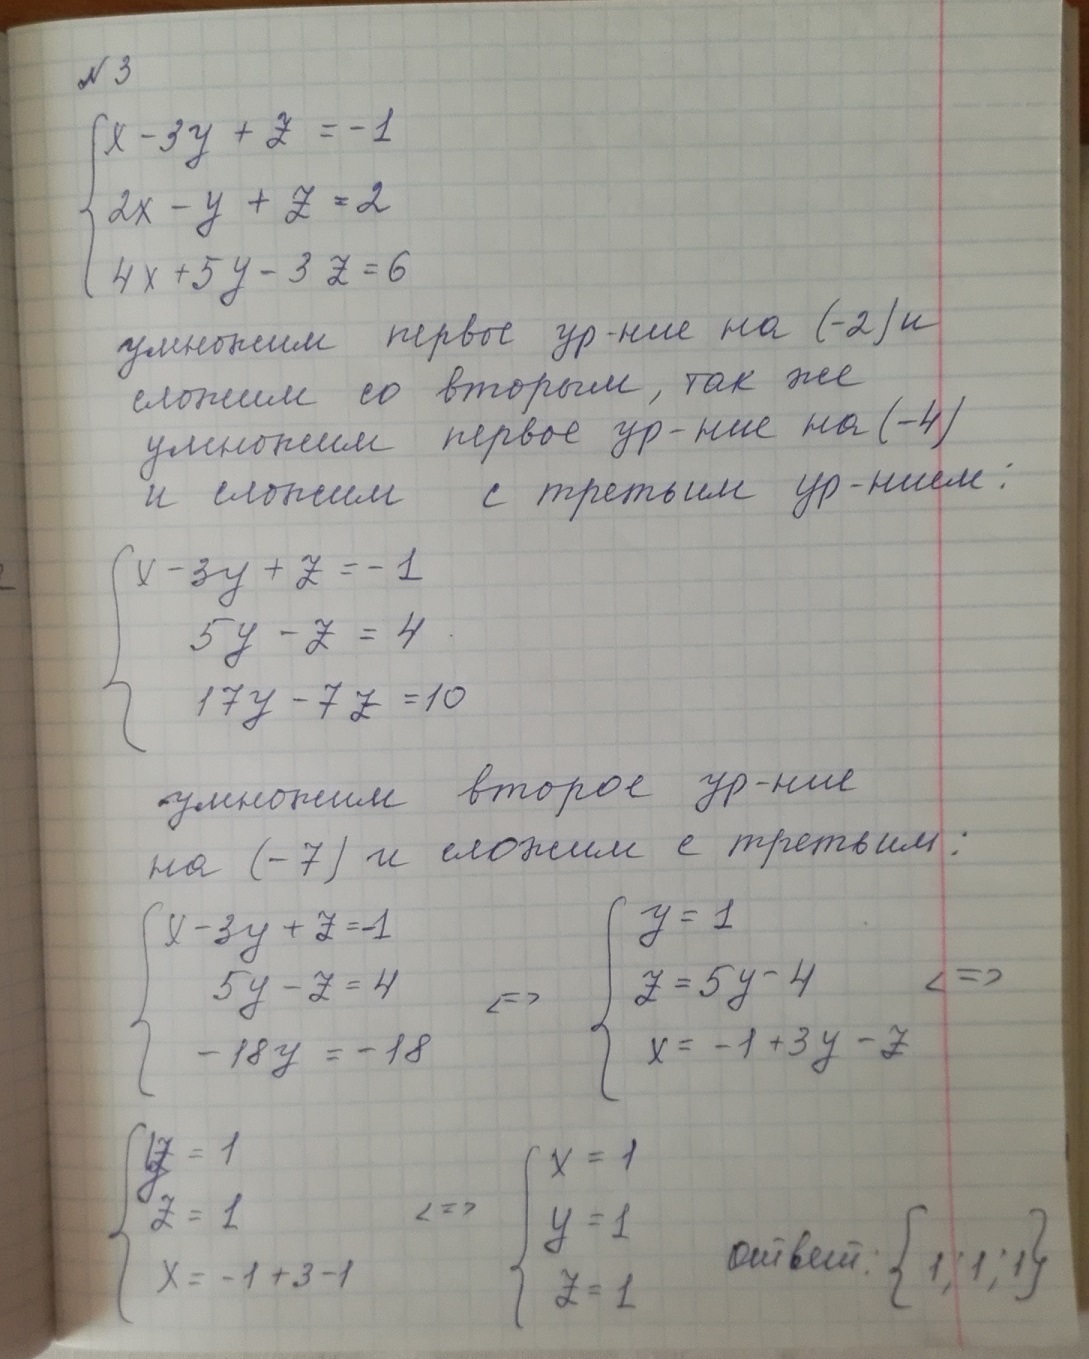 № 3
x - 3y + z = -1
2x - y + z = 2
4x + 5y - 3z = 6
умножим первое ур-ние на (-2) и
сложим со вторым, так же
умножим первое ур-ние на (-4)
и сложим с третьим ур-нием:
x - 3y + z = -1
5y - z = 4
17y - 7z = 10
умножим второе ур-ние
на (-7) и сложим с третьим:
x - 3y + z = -1
5y - z = 4
-18y = -18
<=>
y = 1
z = 5y - 4
x = -1 + 3y - z
<=>
y = 1
z = 1
x = -1 + 3 - 1
<=>
x = 1
y = 1
z = 1
ответ: {1; 1; 1}